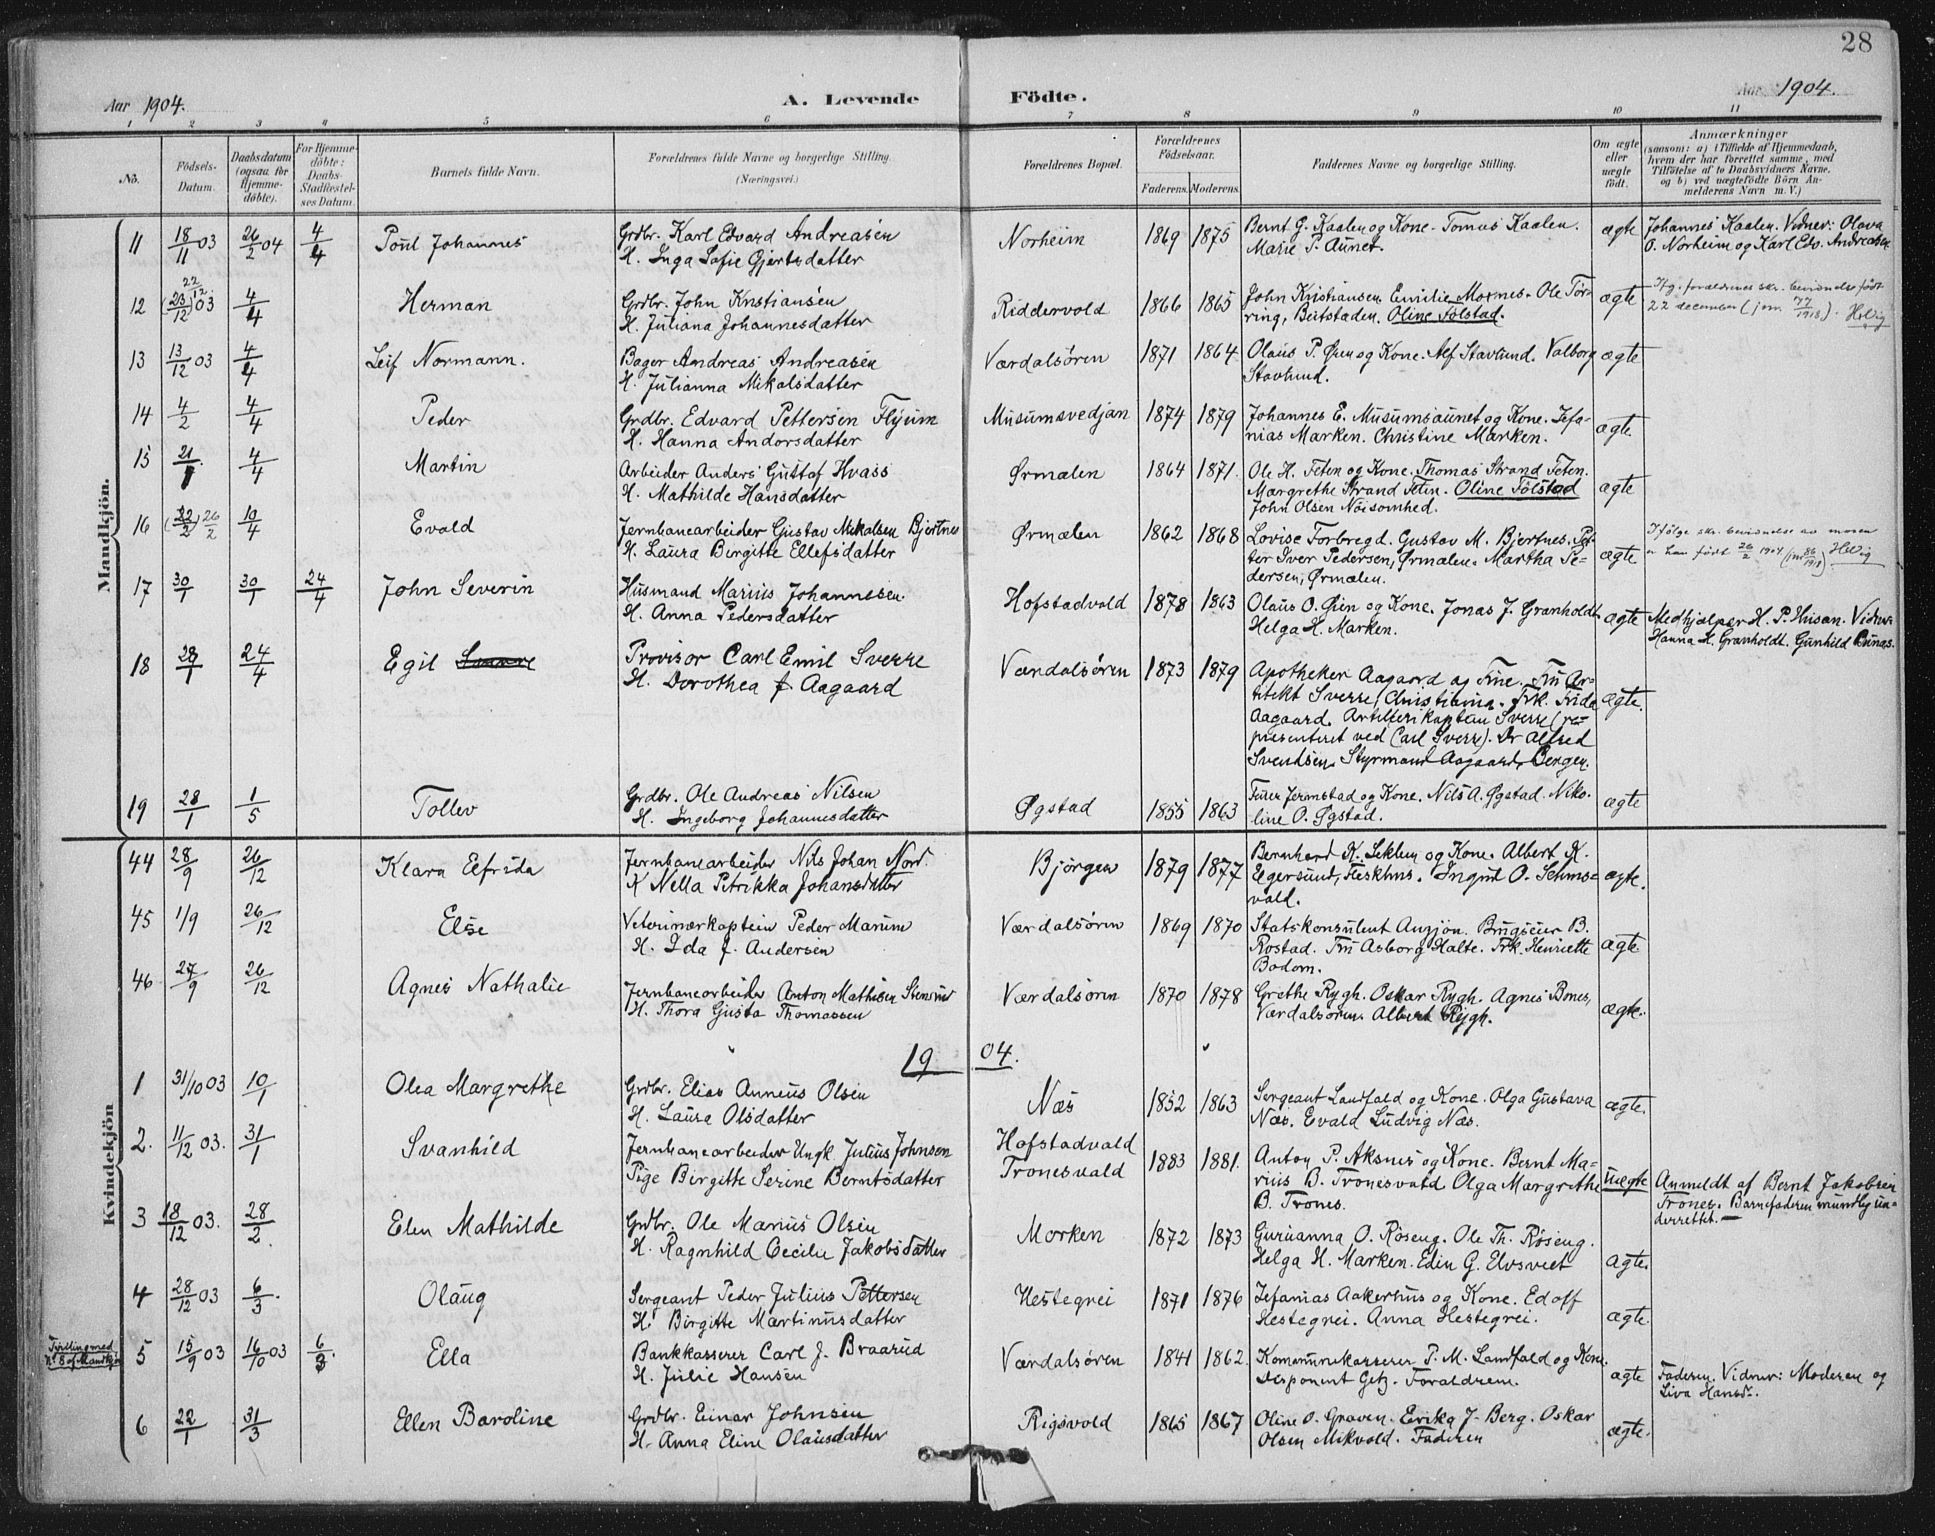 28
Aar 1904.
A. Levende Födte.
Aar 1904.
1 2 3 4 5 6 7 8 9 10 11
No.
Födsels-Datum.
Daabsdatum (ogsaa for Hjemmedöbte).
For Hjemmedöbte: Daabs-Stadfæstelses Datum.
Barnets fulde Navn.
Forældrenes fulde Navne og borgerlige Stilling.
(Næringsvei.)
Forældrenes Bopæl.
Forældrenes Födselsaar.
Faderens. Moderens.
Faddernes Navne og borgerlige Stilling.
Om ægte eller uægte födt.
Anmærkninger
(saasom: a) i Tilfælde af Hjemmedaab, hvem der har forrettet samme, med Tilföielse af to Daabsvidners Navne, og b) ved uægtefödte Börn Anmelderens Navn m. V.)
Mandkjön.
11 18/11 03 26/2 04 4/4 Poul Johannes Grdbr. Karl Edvard Andreasen Norheim 1869 1875 Bernt G. Kaalen og Kone. Tomas Kaalen. ægte Johannes Kaalen. Vidner: Olava
H. Inga Sofie Gjertsdatter Marie P. Aunet. O. Norheim og Karl Edv. Andreasen
12 22/12 (23/12) 03 4/4 Herman Grdbr. John Kristiansen Riddervold 1866 1865 John Kristiansen. Emilie Moxnes. Ole Tør- ægte Ifg. foreldrenes skr. bevidnelse født
H. Juliana Johannesdatter ring, Beitstaden. Oline Tolstad. 22 december (jour. 77/1918). Helvig
13 13/12 03 4/4 Leif Normann. Bager Andreas Andreasen Værdalsøren 1871 1864 Olaus P. Øien og Kone. Alf Stavlund. Valborg ægte
H. Julianna Mikalsdatter Stavlund.
14 4/2 4/4 Peder Grdbr. Edvard Pettersen Flyum Musumsvedjan 1874 1879 Johannes E. Musumsaunet og Kone. Zefa- ægte
H. Hanna Andorsdatter nias Marken. Christine Marken.
15 21/1 4/4 Martin Arbeider Anders Gustaf Hvass Ørmælen 1864 1871. Ole H. Feten og Kone. Thomas Strand Feten.
H. Mathilde Hansdatter Margrethe Strand Feten. Oline Tolstad ægte
John Olsen Nøisomhed.
16 (22/2) 26/2 10/4 Evald Jernbanearbeider Gustav Mikalsen Bjertnes Ørmælen 1862 1868 Lovise Forbregd. Gustav M. Bjertnes. Pet- Ifølge skr. bevidnelse av moren
H. Laura Birgitte Ellefsdatter ter Iver Pedersen, Ørmælen. Martha Pe- ægte er han født 26/2 1904 (jnr 86/1918) Helvig
dersen, Ørmælen.
17 30/1 30/1 24/4 John Severin Husmand Marius Johannesen. Hofstadvald 1878 1863 Olaus O. Øien og Kone. Jonas J. Granholdt. ægte Medhjælper H. P. Husan. Vidner:
H. Anna Pedersdatter Helga H. Marken. Hanna H. Granholdt. Gunhild Bunæs.
18 28/1 24/4 Egil Provisor Carl Emil Sverre Værdalsøren 1873 1879 Apotheker Aagaard og Frue. Fru Ar-
H. Dorothea f. Aagaard kitekt Sverre, Christiania. Frk. Frida ægte.
Aagaard. Artillerikaptein Sverre (re-
presenteret ved Carl Sverre). Dr Alfred
Svendsen. Styrmand Aagaard, Bergen.
19 28/1 1/5 Tollev Grdbr. Ole Andreas Nilsen Øgstad 1855 1863 Einer Jermstad og Kone. Nils A. Øgstad. Niko- ægte
H. Ingeborg Johannesdatter line O. Øgstad.
Kvindekjön
44 28/9 26/12 Klara Elfrida Jernbanearbeider Nils Johan Nord. Bjørgen 1879 1877 Bernhard K. Leklem og Kone. Albert K.
K Nella Petrikka Johansdatter Egersund, Fleskhus. Ingrid O. Sems- ægte.
vald.
45 1/9 26/12 Else Veterinærkaptein Peder Marum Værdalsøren 1869 1870 Statskonsulent Anzjøn. Brugseier B.
H. Ida f. Andersen Rostad. Fru Aasborg Halte. Frk. Henriette ægte.
Bodom.
46 27/9 26/12 Agnes Nathalie Jernbanearbeider Anton Mathisen Stensrud Værdalsøren 1870 1878 Grethe Rygh. Oskar Rygh. Agnes Bones,
H. Thora Gusta Thomassen Værdalsøren. Albert Rygh. ægte.
19 04.
1 31/10 03 10/1 Olea Margrethe Grdbr. Elias Anneus Olsen Næs 1852 1863 Sergeant Landfald og Kone. Olga Gustava ægte.
H. Laura Olsdatter Næs. Evald Ludvig Næs.
2. 11/12 03. 31/1 Svanhild Jernbanearbeider Ungk. Julius Johnsen Hofstadvald 1883 1881. Anton P. Aksnes og Kone. Bernt Ma-
Pige Birgitte Serine Berntsdatter Tronesvald rius B. Tronesvald Olga Margrethe uægte Anmeldt af Bernt Jakobsen
B. Trones. Trones. Barnefaderen mundtlig un-
derrettet.
3 18/12 03. 28/2. Elen Mathilde Grdbr. Ole Marius Olsen Morken 1872 1873 Gurianna O. Røseng. Ole Th. Røseng.
H. Ragnhild Cecilie Jakobsdatter Helga H. Marken. Edin G. Elvsveet ægte.
4 28/12 03 6/3. Olaug Sergeant Peder Julius Pettersen Hestegrei 1871 1876 Zefanias Aakerhus og Kone. Edolf
H. Birgitte Martinusdatter Hestegrei. Anna Hestegrei. ægte.
Tvilling med No. 8 af Mandkjøn 5 15/9 03 16/10 03 6/3. Ella Bankkasserer Carl J. Braarud Værdalsøren 1841 1862. Kommunekasserer P. M. Landfald og Kone.
H. Julie Hansen Disponent Getz. Forældrene. ægte Faderen. Vidner: Moderen og
Liva Hansdr.
6 22/1 31/3 Ellen Baroline Grdbr. Einar Johnsen Rigsvold 1865 1867 Oline O. Graven. Erika J. Berg. Oskar
H. Anna Eline Olausdatter Olsen Mikvold. Faderen ægte.